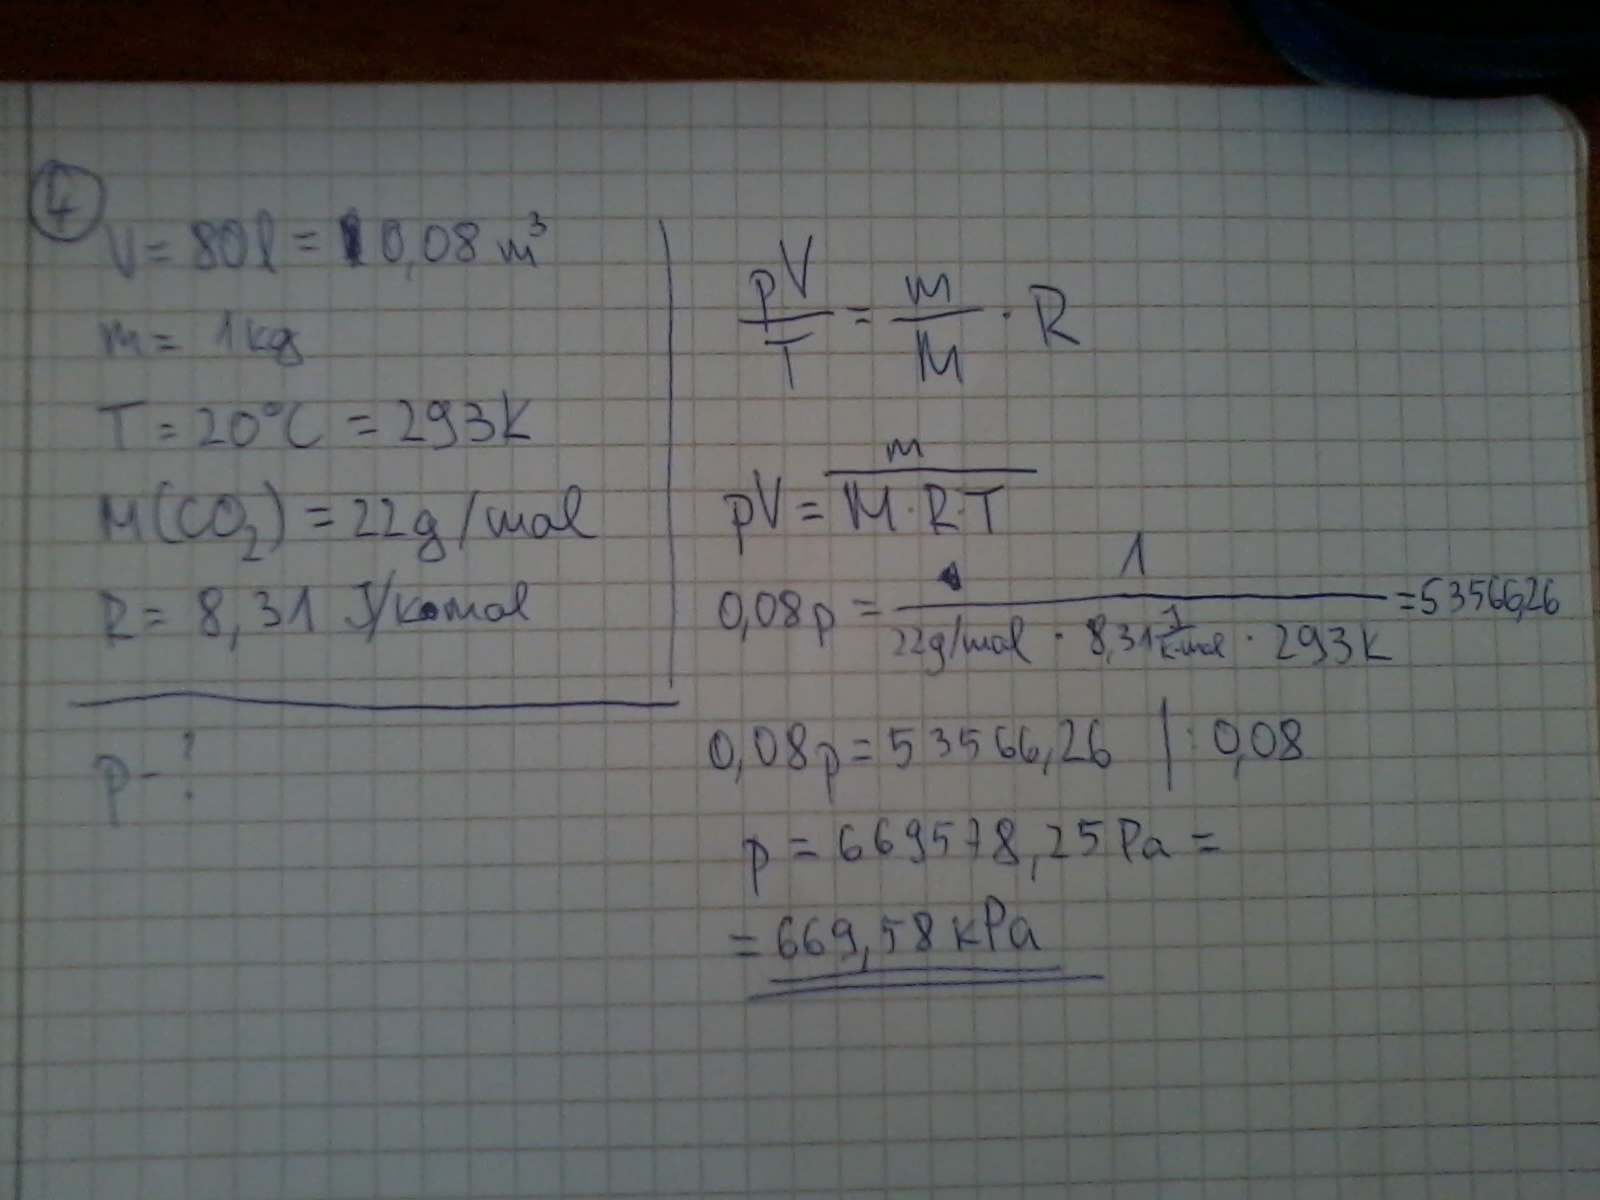 4
V = 80l = 0,08 m³
m = 1kg
T = 20°C = 293K
M(CO₂) = 22g/mol
R = 8,31 J/K·mol
p - ?
pV/T = m/M · R
pV = m/M·R·T
0,08p = 1/22g/mol · 8,31 J/K·mol · 293K = 53566,26
0,08p = 53566,26 | : 0,08
p = 669578,25 Pa =
= 669,58 kPa